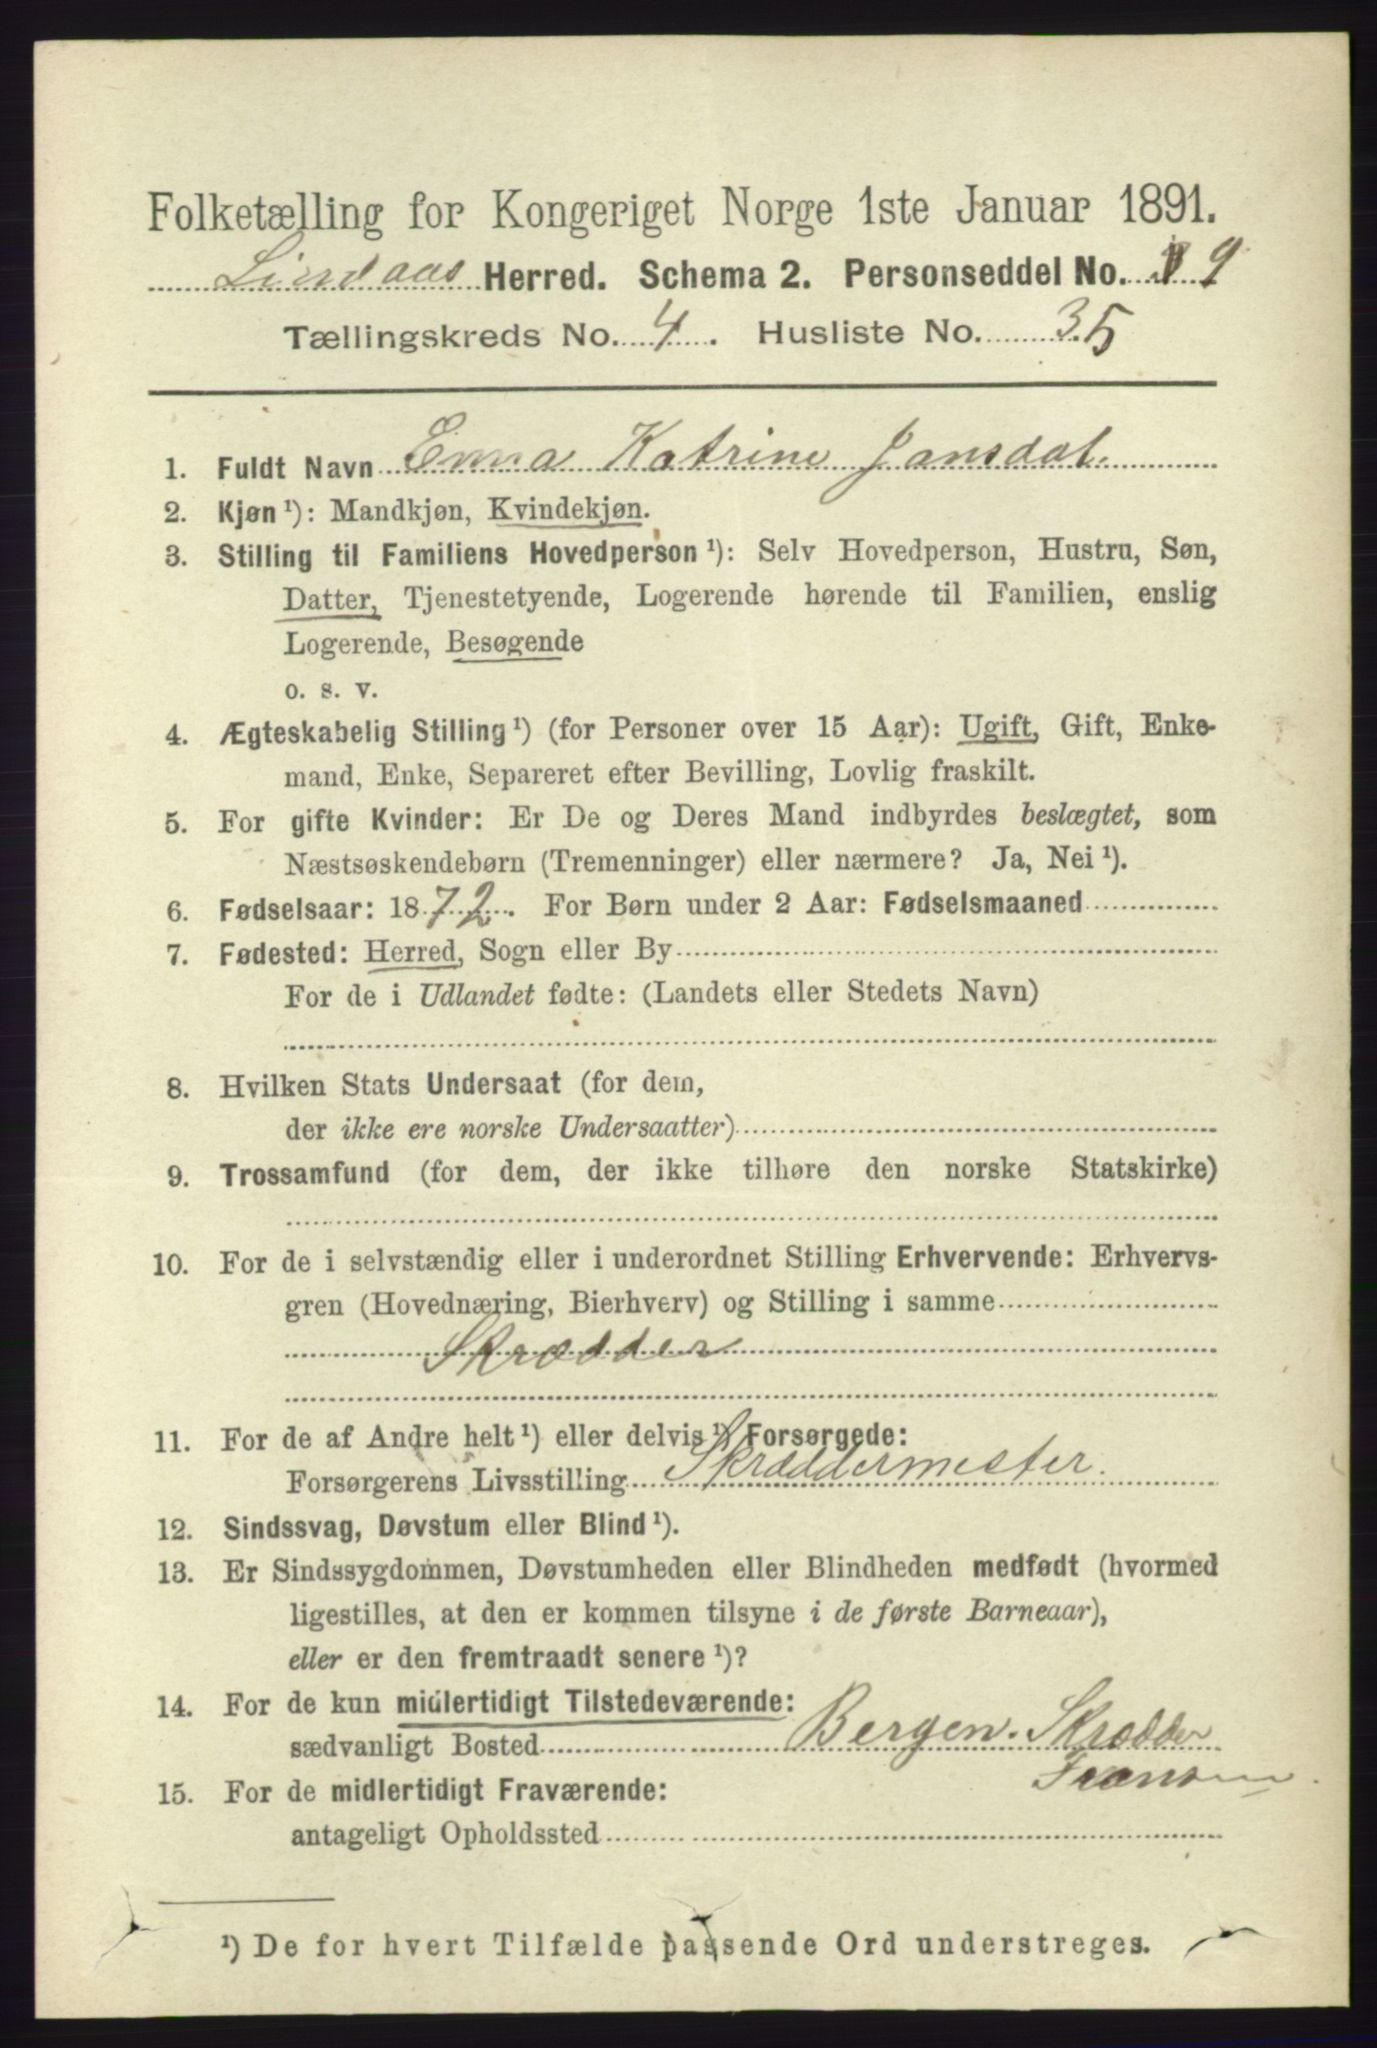 Folketælling for Kongeriget Norge 1ste Januar 1891.
Lindaas Herred. Schema 2. Personseddel No. 9
Tællingskreds No. 4. Husliste No. 35
1. Fuldt Navn Emma Katrine Jansdat.
2. Kjøn¹): Mandkjøn, Kvindekjøn.
3. Stilling til Familiens Hovedperson¹): Selv Hovedperson, Hustru, Søn,
Datter, Tjenestetyende, Logerende hørende til Familien, enslig
Logerende, Besøgende
o. s. v.
4. Ægteskabelig Stilling¹) (for Personer over 15 Aar): Ugift, Gift, Enke-
mand, Enke, Separeret efter Bevilling, Lovlig fraskilt.
5. For gifte Kvinder: Er De og Deres Mand indbyrdes beslægtet, som
Næstsøskendebørn (Tremenninger) eller nærmere? Ja, Nei¹).
6. Fødselsaar: 1872. For Børn under 2 Aar: Fødselsmaaned
7. Fødested: Herred, Sogn eller By
For de i Udlandet fødte: (Landets eller Stedets Navn)
8. Hvilken Stats Undersaat (for dem,
der ikke ere norske Undersaatter)
9. Trossamfund (for dem, der ikke tilhøre den norske Statskirke)
10. For de i selvstændig eller i underordnet Stilling Erhvervende: Erhvervs-
gren (Hovednæring, Bierhverv) og Stilling i samme
Skrædder
11. For de af Andre helt¹) eller delvis¹) Forsørgede:
Forsørgerens Livsstilling Skræddermester.
12. Sindssvag, Døvstum eller Blind¹).
13. Er Sindssygdommen, Døvstumheden eller Blindheden medfødt (hvormed
ligestilles, at den er kommen tilsyne i de første Barneaar),
eller er den fremtraadt senere¹)?
14. For de kun midlertidigt Tilstedeværende:
sædvanligt Bosted Bergen. Skrædder
15. For de midlertidigt Fraværende:
antageligt Opholdssted
¹) De for hvert Tilfælde passende Ord understreges.